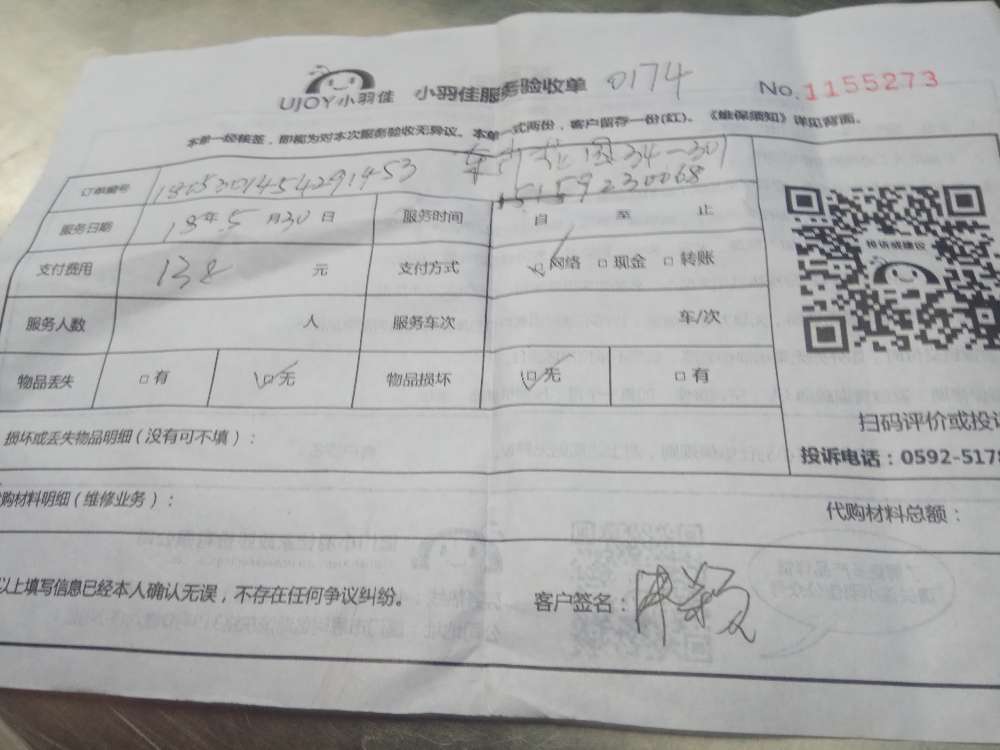 UJOY小羽佳 小羽佳服务验收单 0174 No.1155273
本单一经核签，即视为对本次服务验收无异议。本单一式两份，客户留存一份(红)。《维保须知》详见背面。
订单编号 1805301454291453 34-301
15159230068
服务日期 18年5月30日 服务时间 自 至 止
支付费用 138 元 支付方式 □网络 □现金 □转账
投诉或建议
服务人数 人 服务车次 车/次
物品丢失 □有 □无 物品损坏 □无 □有
扫码评价或投诉
损坏或丢失物品明细(没有可不填)：
投诉电话：0592-5178
购材料明细(维修业务)：
代购材料总额：
以上填写信息已经本人确认无误，不存在任何争议纠纷。
客户签名：